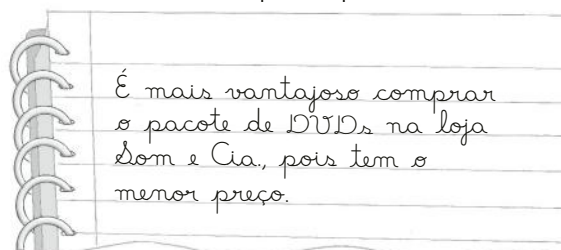 É mais vantajoso comprar
o pacote de DVDs na loja
Som e Cia., pois tem o
menor preço.